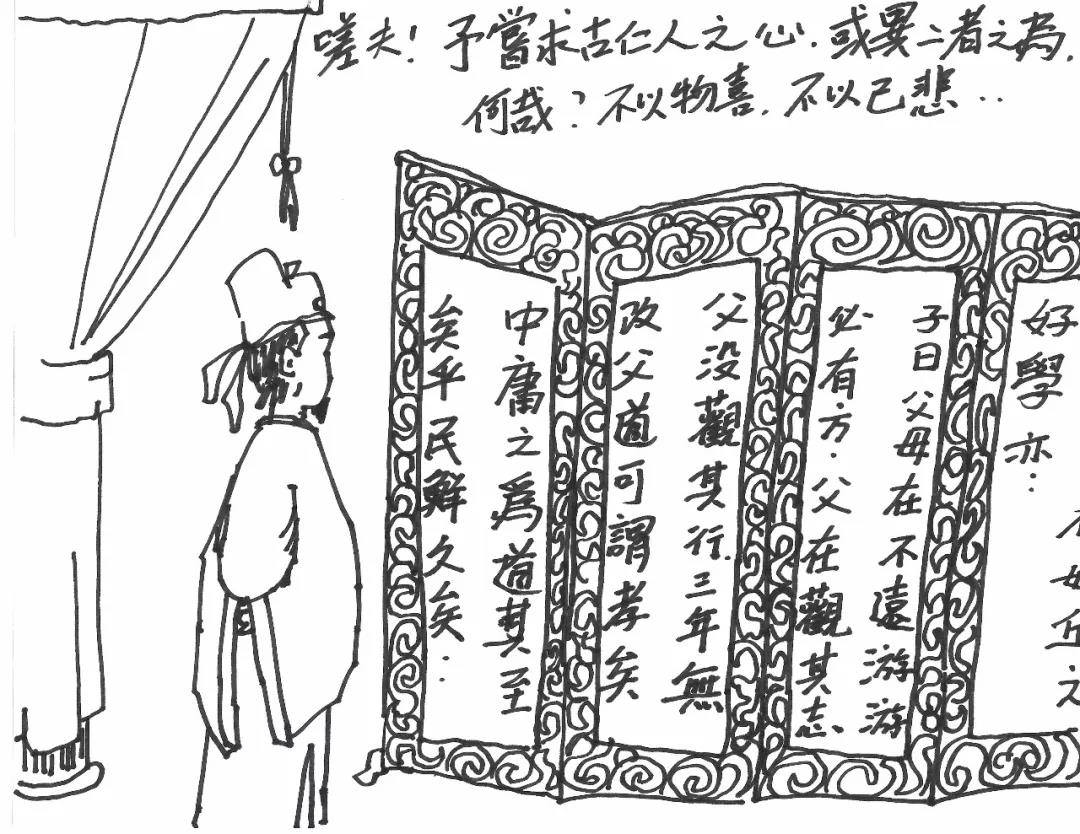 嗟夫！予嘗求古仁人之心．或異二者之為．
何哉？不以物喜．不以己悲…
不如丘之
好學亦…
子曰父母在不遠游游
必有方．父在觀其志
父没觀其行．三年無
改父道可謂孝矣
中庸之爲道其至
矣乎民鮮久矣．